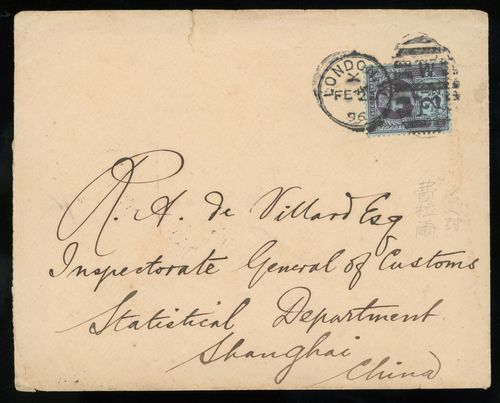 LONDON
X
FE 2
96
2½
R. A. de Villard Esq
Inspectorate General of Customs
Statistical Department
Shanghai
China
費拉爾